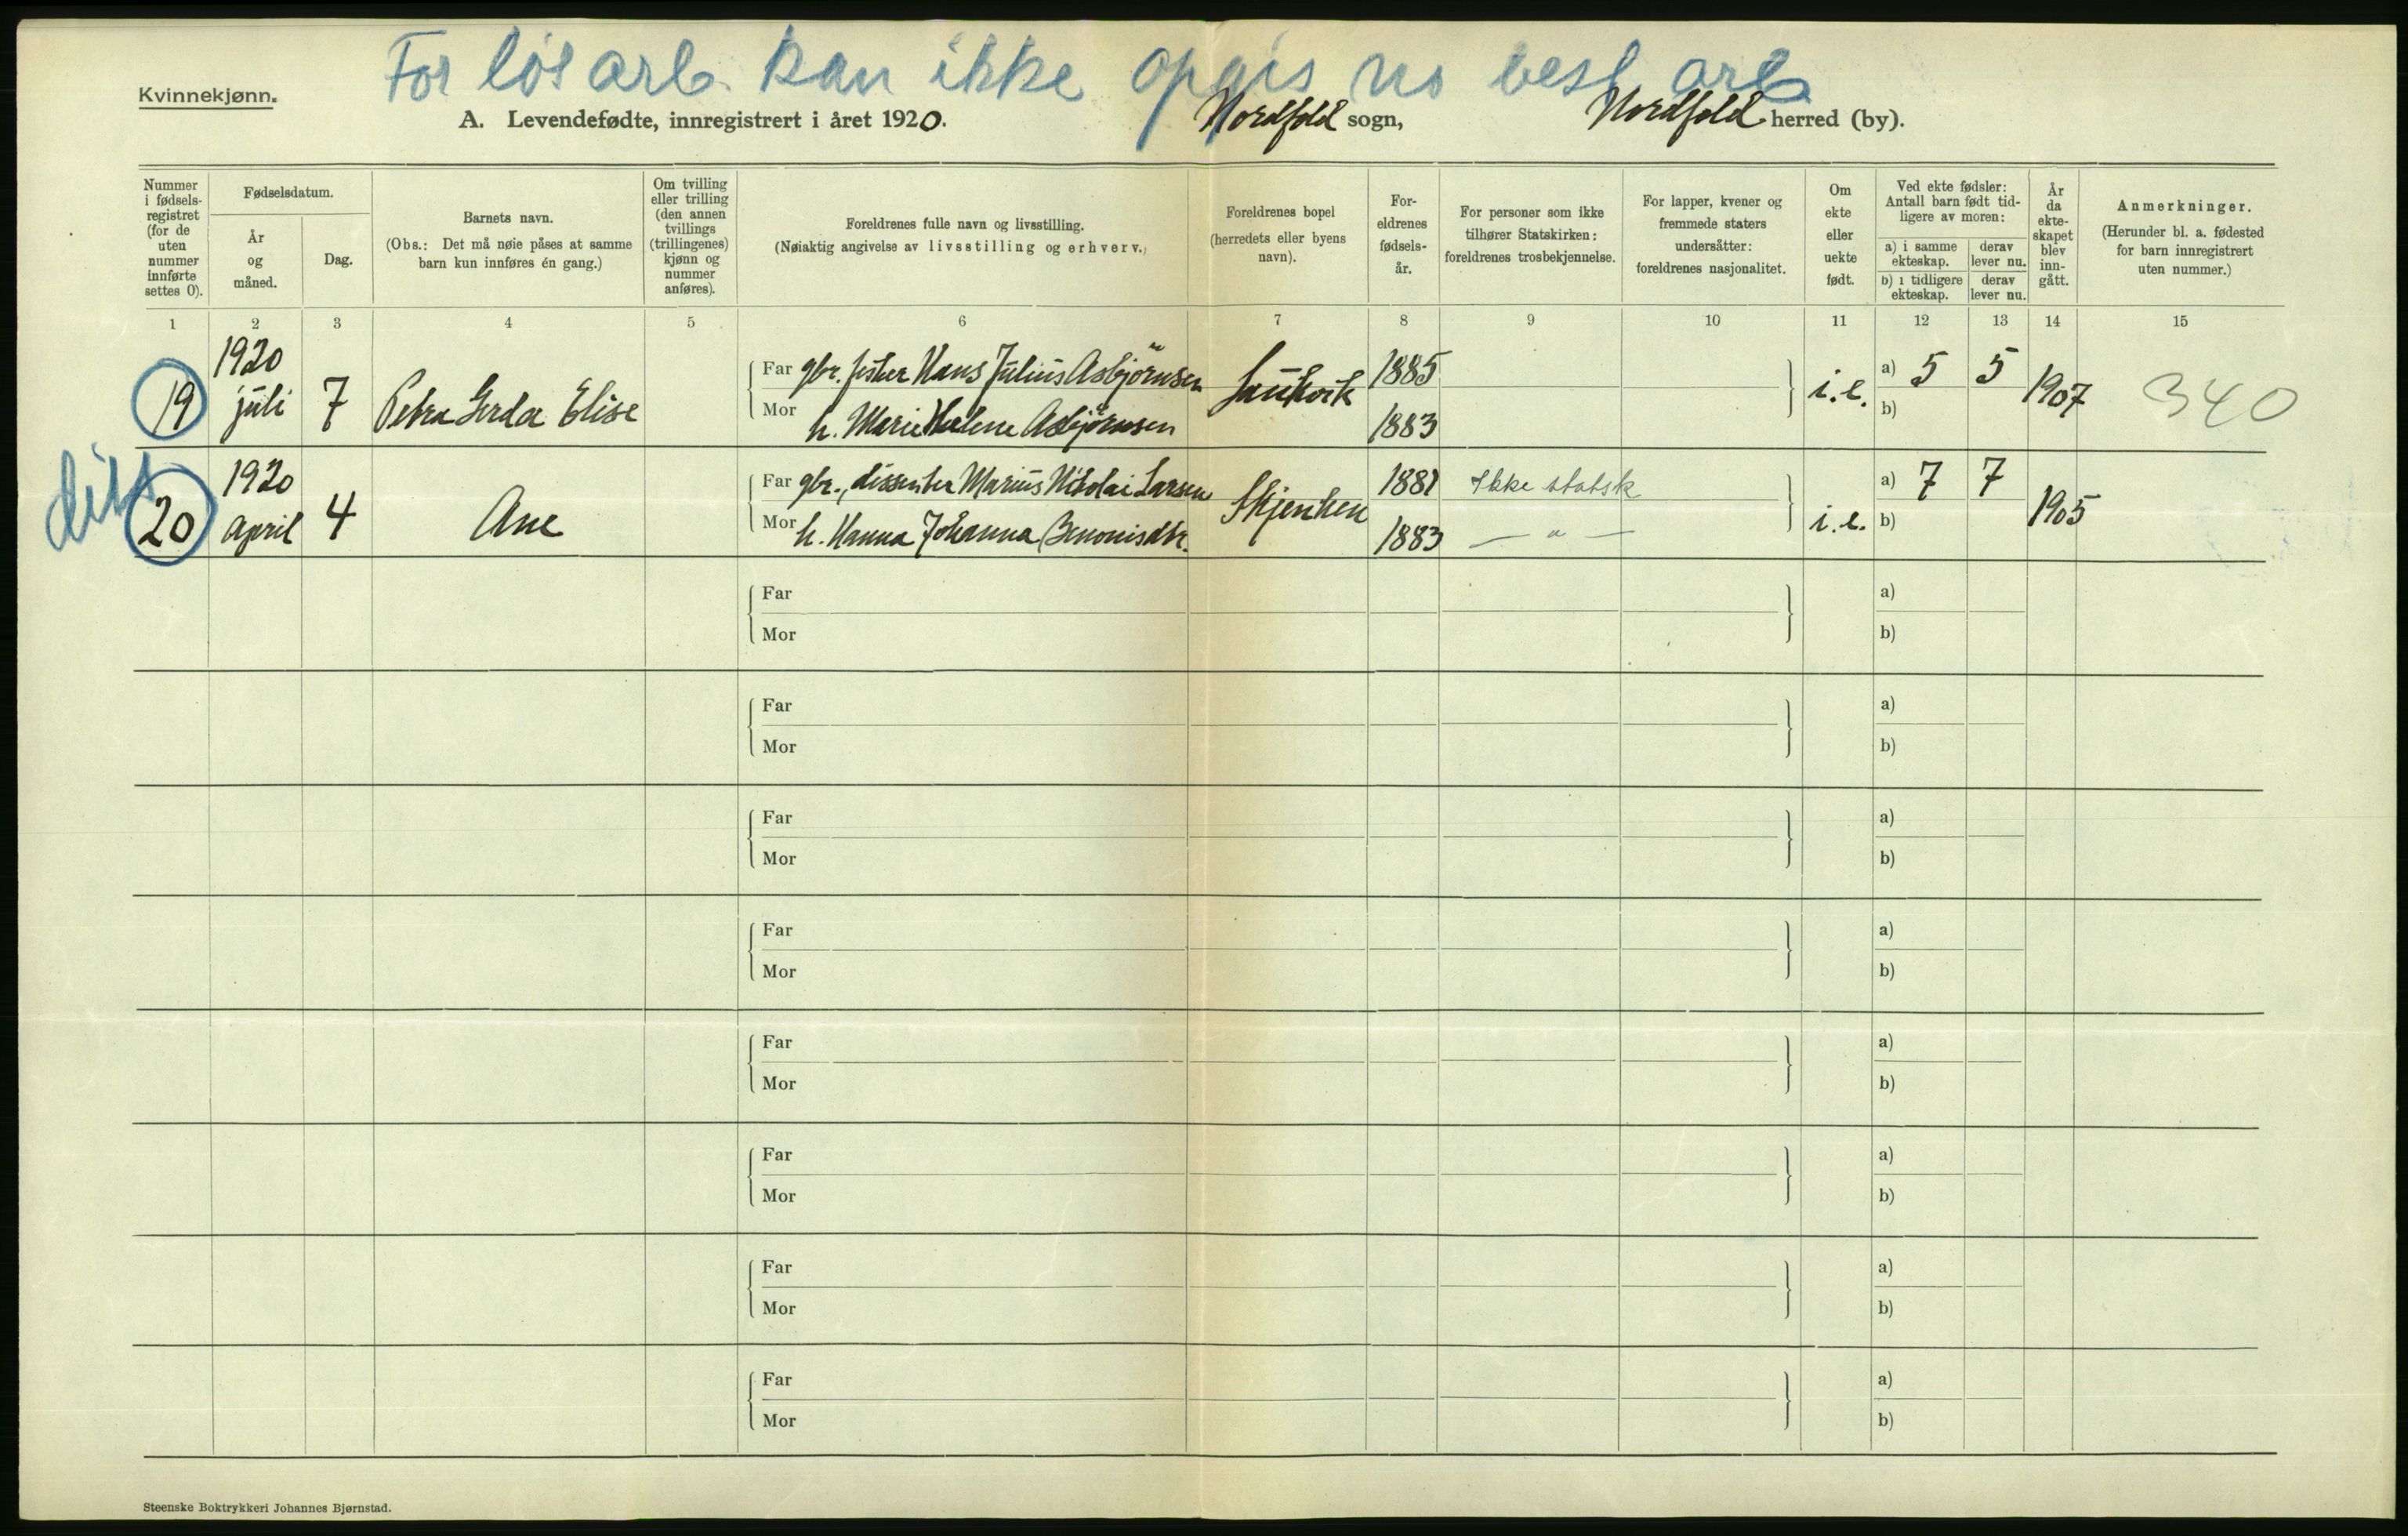 For løs arb. kan ikke opgis no best arb
Kvinnekjønn.
A. Levendefødte, innregistrert i året 1920. Nordfold sogn, Nordfold herred (by).
Nummer i fødsels-registret (for de uten nummer innførte settes 0).
Fødselsdatum.
År og måned.
Dag.
Barnets navn.
(Obs.: Det må nøie påses at samme barn kun innføres én gang.)
Om tvilling eller trilling (den annen tvillings (trillingenes) kjønn og nummer anføres).
Foreldrenes fulle navn og livsstilling.
(Nøiaktig angivelse av livsstilling og erhverv.)
Foreldrenes bopel (herredets eller byens navn).
For-eldrenes fødsels-år.
For personer som ikke tilhører Statskirken: foreldrenes trosbekjennelse.
For lapper, kvener og fremmede staters undersåtter: foreldrenes nasjonalitet.
Om ekte eller uekte født.
Ved ekte fødsler: Antall barn født tid-ligere av moren:
a) i samme ekteskap.
derav lever nu.
b) i tidligere ekteskap.
derav lever nu.
År da ekte-skapet blev inn-gått.
Anmerkninger.
(Herunder bl. a. fødested for barn innregistrert uten nummer.)
1 2 3 4 5 6 7 8 9 10 11 12 13 14 15
19 1920 juli 7 Petra Gerda Elise
Far gbr. fisker Hans Julius Asbjørnsen 1885
Mor h. Marie Helene Asbjørnsen 1883
i.e. a) 5 5 b) 1907 340
20 1920 april 4 Ane
Far gbr., dissenter Marius Nikolai Larsen Skjenken 1881 Ikke statsk
Mor h. Hanna Johanna Benonisdtr. 1883 — " —
i.e. a) 7 7 b) 1905
Far a)
Mor b)
Far a)
Mor b)
Far a)
Mor b)
Far a)
Mor b)
Far a)
Mor b)
Far a)
Mor b)
Far a)
Mor b)
Far a)
Mor b)
Steenske Boktrykkeri Johannes Bjørnstad.